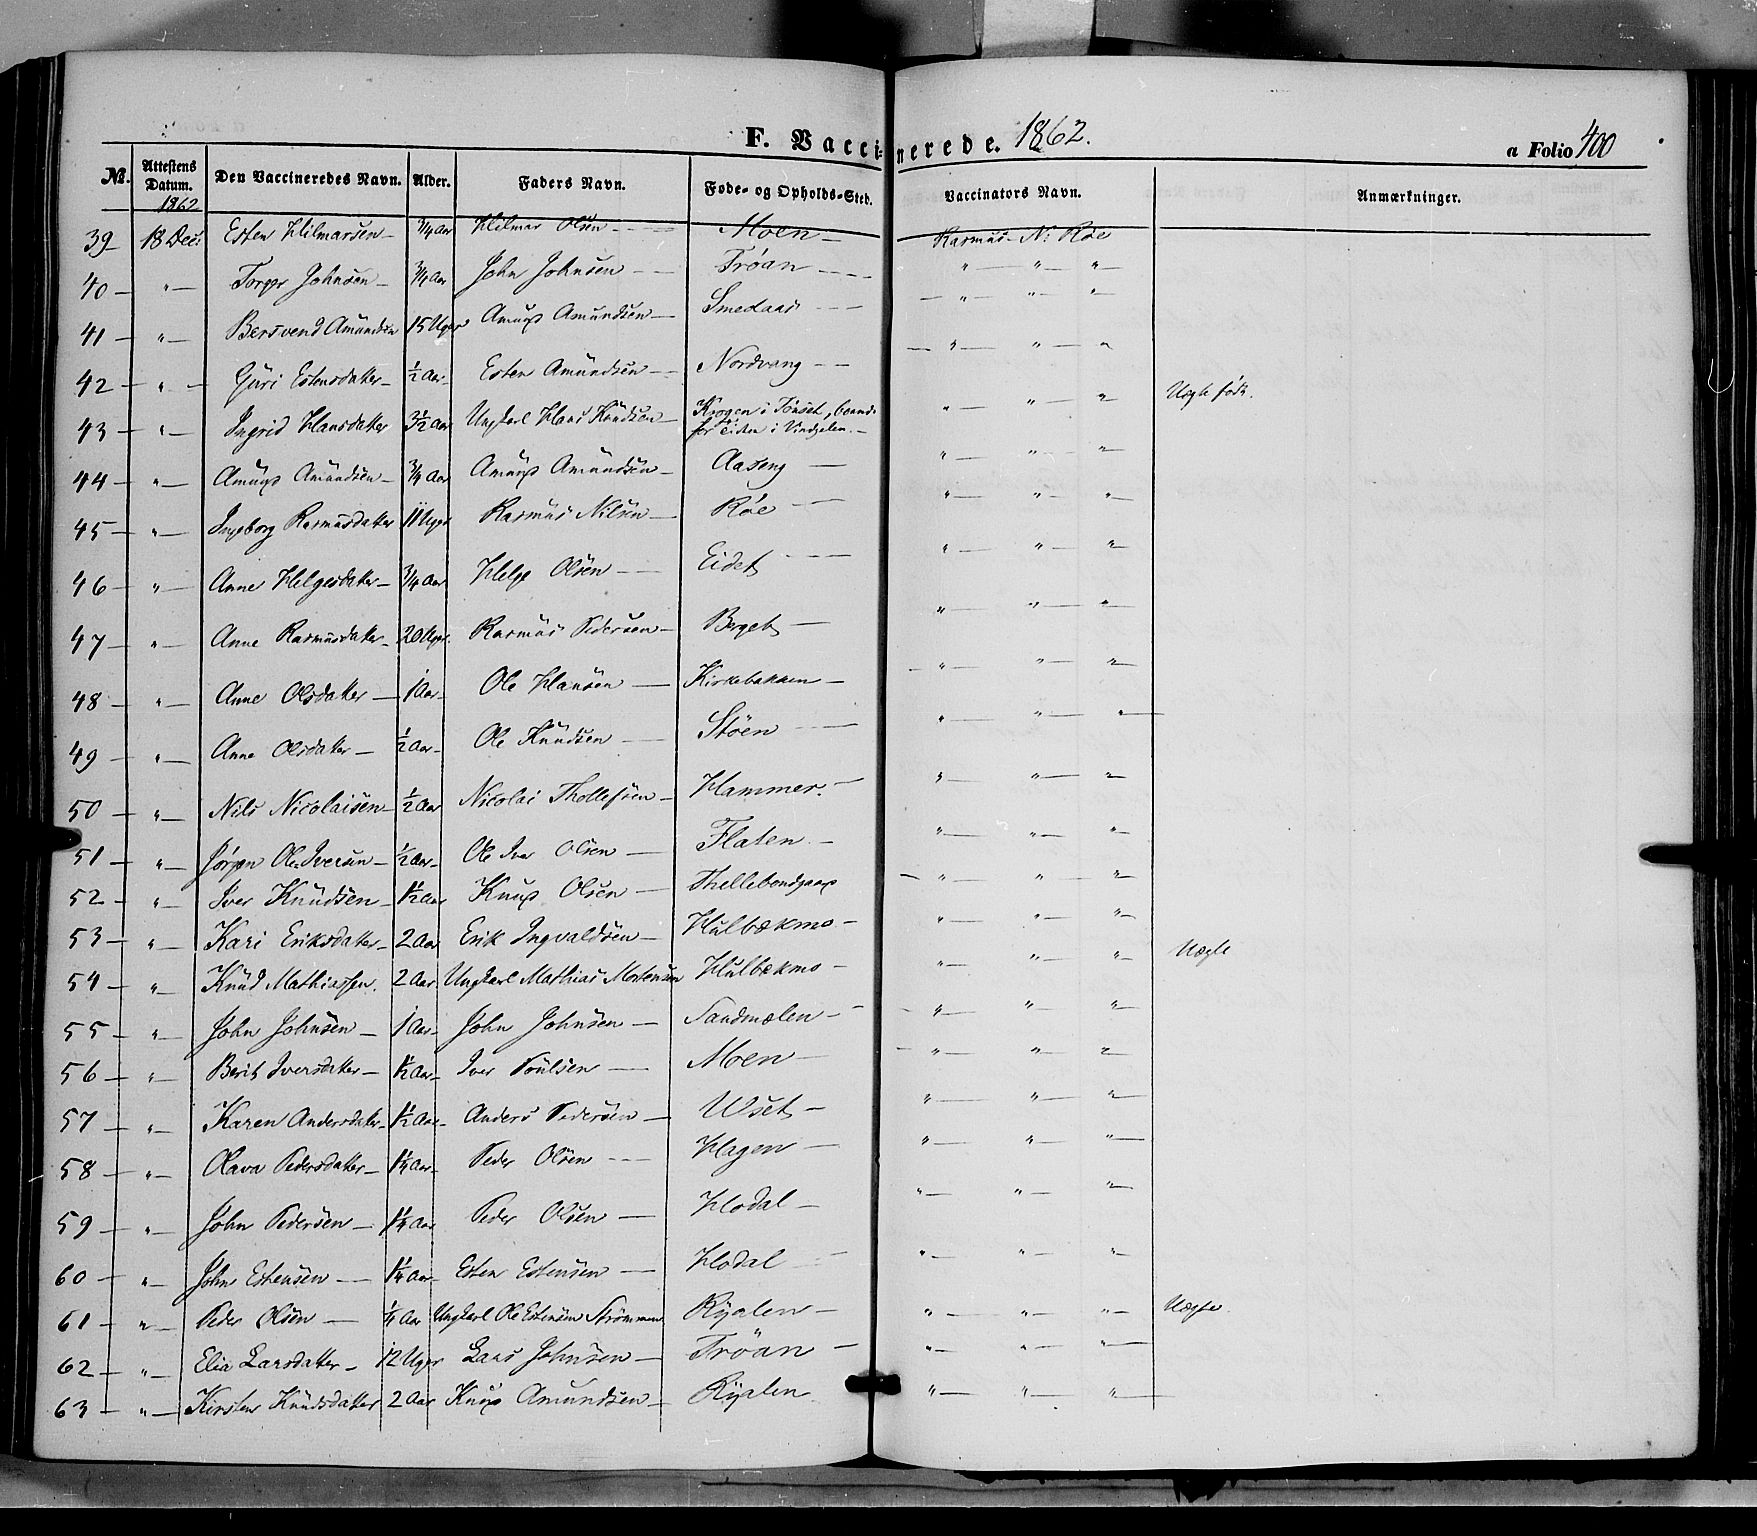 F. Vaccinerede. 1862.
a Folio 400
No. Attestens Datum. Den Vaccineredes Navn. Alder. Faders Navn. Føde- og Opholds-Sted. Vaccinators Navn. Anmærkninger.
1862
39 18 Decb Esten Hilmarsen 3/4 Aar Hilmar Olsen Moen Rasmus N: Røe
40 " Torger Johnsen 3/4 Aar John Johnsen Trøan " " "
41 " Bersvend Amundsen 15 Uger Amund Amundsen Smedaas " " "
42 " Guri Estensdatter 1/2 Aar Esten Amundsen Nordvang " " "
43 " Ingrid Hansdatter 3 1/2 Aar Ungkarl Hans Knudsen Krogen i Tønset, boende for tiden i Vindgelen. " " " Uægte født.
44 " Amund Amundsen 3/4 Aar Amund Amundsen Aaseng " " "
45 " Ingeborg Rasmusdatter 11 Uger Rasmus Nilsen Røe " " "
46 " Anne Helgesdatter 3/4 Aar Helge Olsen Eidet " " "
47 " Anne Rasmusdatter 20 Uger. Rasmus Pedersen Berget " " "
48 " Anne Olsdatter 1 Aar Ole Hansen Kirkebakken " " "
49 " Anne Olsdatter 1/2 Aar Ole Knudsen Støen " " "
50 " Nils Nicolaisen 1/2 Aar Nicolai Thollefsen Hammer. " " "
51 " Jørgen Ole Iversen 1/2 Aar Ole Iver Olsen Flaten " " "
52 " Iver Knudsen 1 1/2 Aar Knud Olsen Thellebondgaard " " "
53 " Kari Eriksdatter 2 Aar Erik Ingvaldsen Hulbækmo " " "
54 " Knud Mathiassen. 2 Aar Ungkarl Mathias Mortensen Hulbækmo " " " Uægte
55 " John Johnsen 1 Aar John Johnsen Sandmælen " " "
56 " Berit Iversdatter 1 1/2 Aar Iver Poulsen Moen " " "
57 " Karen Andersdatter 1 1/2 Aar Anders Pedersen Uset " " "
58 " Olava Pedersdatter 1 1/4 Aar Peder Olsen Hagen " " "
59 " John Pedersen 1 1/4 Aar Peder Olsen Hodal " " "
60 " John Estensen 1 1/4 Aar Esten Estensen Hodal " " "
61 " Peder Olsen 1/4 Aar Ungkarl Ole Estensen Strømmen Ryalen " " " Uægte.
62 " Elia Larsdatter 12 Uger Lars Johnsen Trøan " " "
63 " Kirsten Knudsdatter 2 Aar Knud Amundsen Ryalen " " "